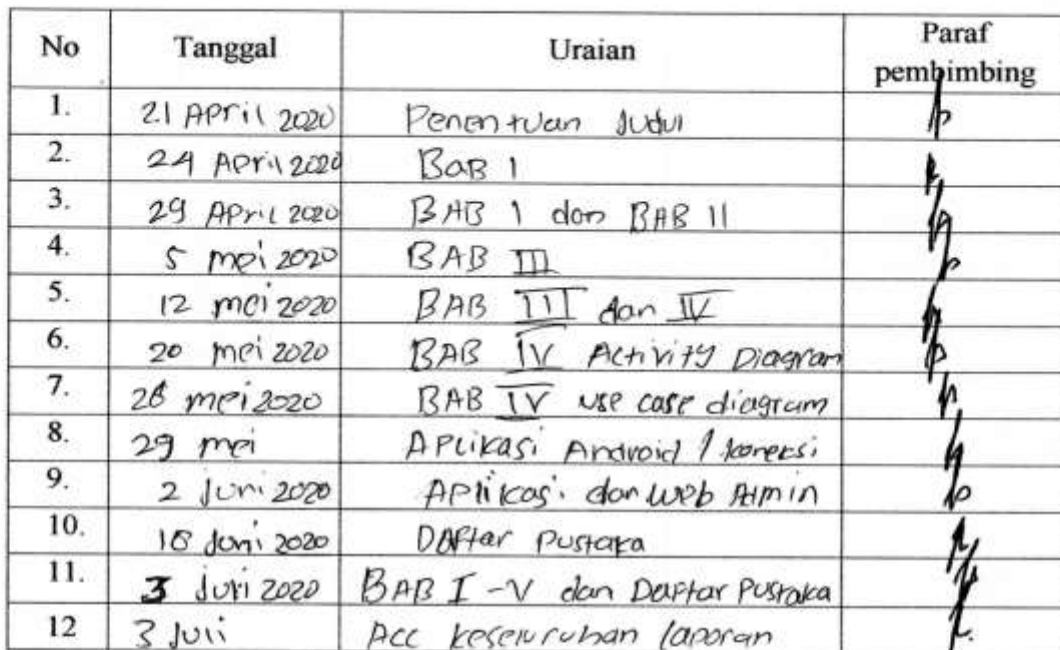 No Tanggal Uraian Paraf pembimbing
1. 21 April 2020 Penentuan Judul
2. 24 April 2020 BaB 1
3. 29 April 2020 BAB 1 dan BAB II
4. 5 mei 2020 BAB III
5. 12 mei 2020 BAB III dan IV
6. 20 mei 2020 BAB IV Activity Diagram
7. 26 mei 2020 BAB IV use case diagram
8. 29 mei Aplikasi Android / koneksi
9. 2 Juni 2020 Aplikasi dan web Atmin
10. 18 Juni 2020 Daftar Pustaka
11. 3 Juli 2020 BAB I - V dan Daftar Pustaka
12 3 Juli Acc keseluruhan laporan